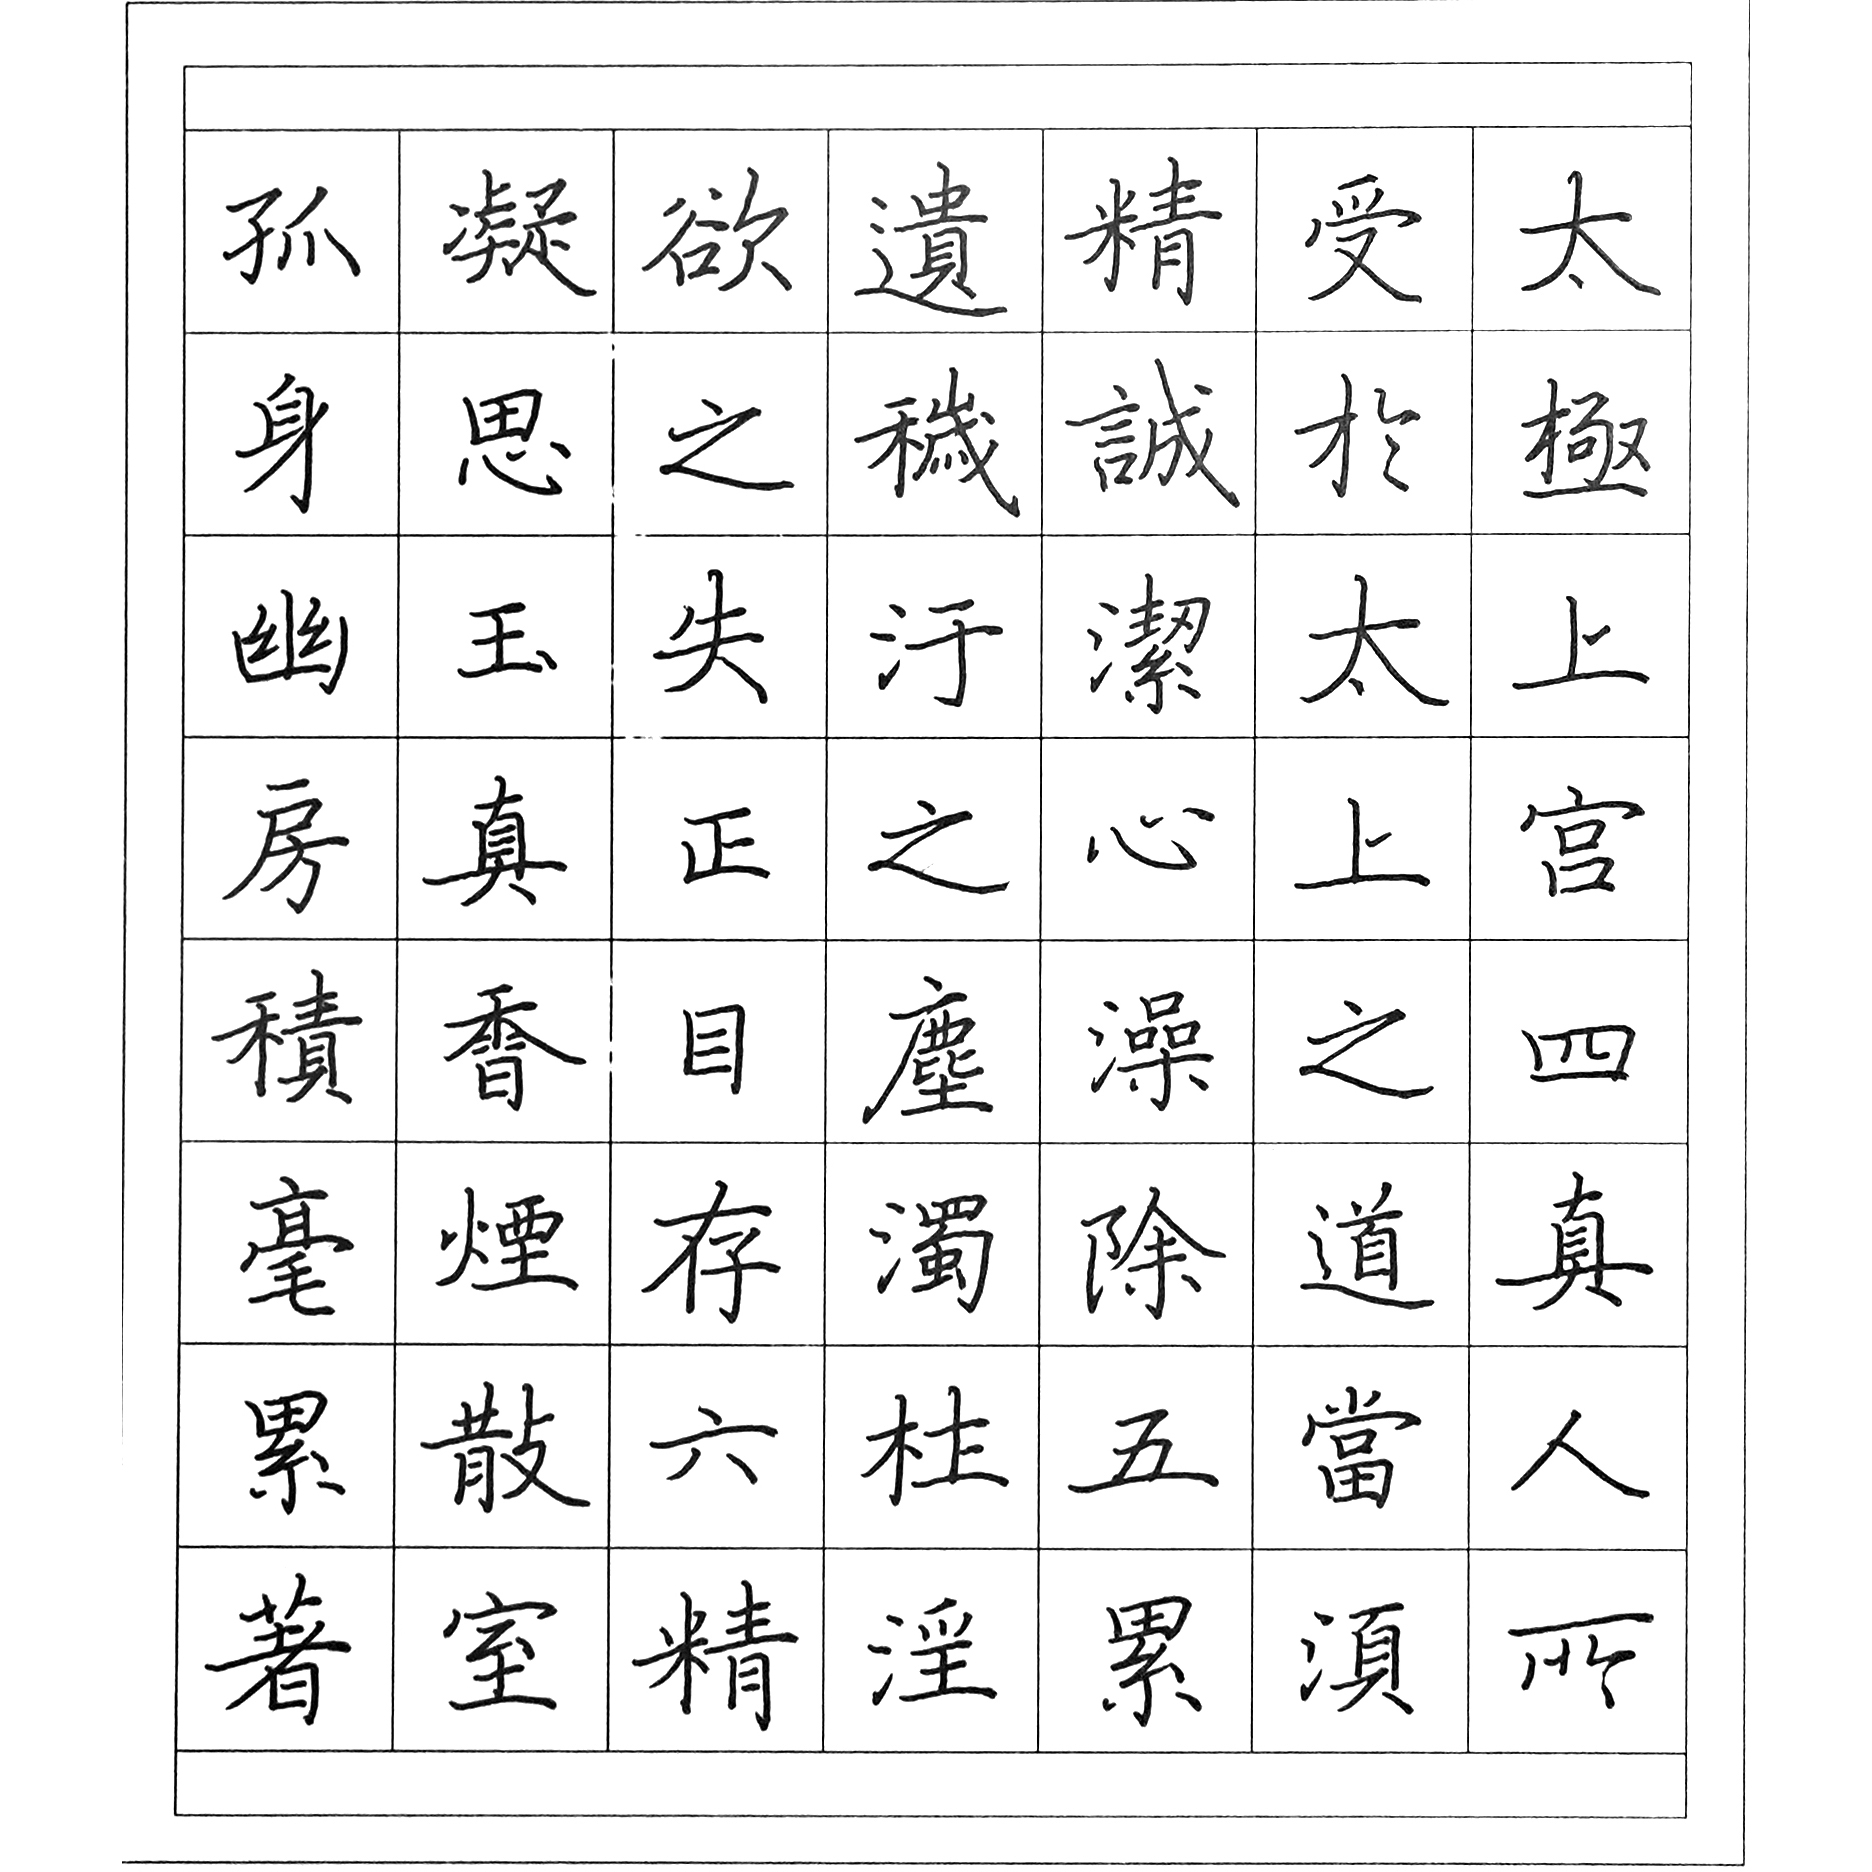 太極上宮四真人所
受於太上之道當須
精誠潔心澡除五累
遺穢汙之塵濁杜淫
欲之失正目存六精
凝思玉真香煙散室
孤身幽房積毫累著